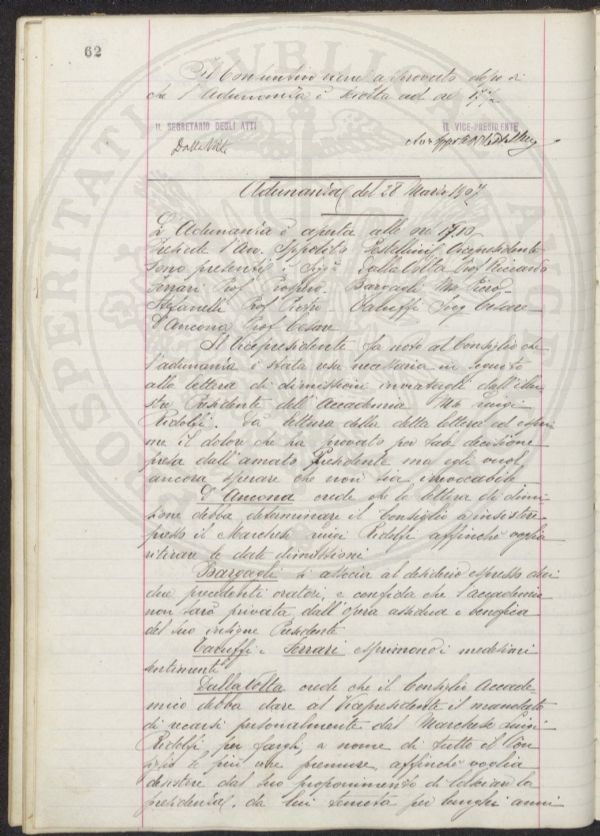 62
Il Consuntivo viene approvato dopo di
che l'Adunanza è sciolta ad ore 17 ½
IL SEGRETARIO DEGLI ATTI
IL VICE-PRESIDENTE
Dalla Volta
Adunanza del 28 Marzo 1907
L'Adunanza è aperta alle ore 17,10
Presiede l'Avv. Ippolito Pestellini Vicepresidente
Sono presenti i Sigri Dalla Volta Prof Riccardo
Ferrari Prof Prospero, Bargagli Mse Piero
Stefanelli Prof Pietro - Caruffi Ing Cesare -
D'Ancona Prof Cesare
Il Vicepresidente fa noto al Consiglio che
l'adunanza è stata resa necessaria in seguito
alla lettera di dimissioni inviatagli dall'illu
stre Presidente dell'Accademia Mse Luigi
Ridolfi. Dà lettura della detta lettera ed espri
me il dolore che ha provato per tale decisione
presa dall'amato Presidente ma egli vuol
ancora sperare che non sia irrevocabile
D'Ancona crede che la lettera di dimis
sione debba determinare il Consiglio a insistere
presso il Marchese Luigi Ridolfi affinchè voglia
ritirare le date dimissioni
Bargagli si associa al desiderio espresso dai
due precedenti oratori, e confida che l'accademia
non sarà privata dall'opera assidua e benefica
del suo insigne Presidente
Caruffi e Ferrari esprimono i medesimi
sentimenti
Dalla Volta crede che il Consiglio Accade-
mico debba dare al Vicepresidente il mandato
di recarsi personalmente dal Marchese Luigi
Ridolfi per fargli, a nome di tutto il Con
siglio le più vive premure affinchè voglia
desistere dal suo proponimento di lasciar la
presidenza, da lui tenuta per lunghi anni